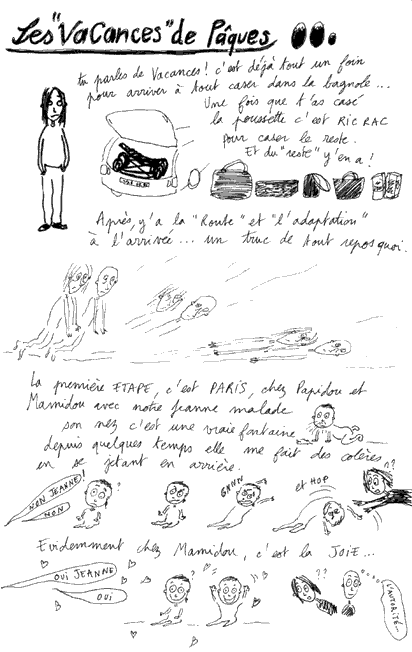 Les "Vacances" de Pâques
tu parles de Vacances ! c'est déjà tout un foin
pour arriver à tout caser dans la bagnole...
Une fois que t'as casé
la poussette c'est RIC RAC
pour caser le reste.
Et du "reste" y'en a !
Après, y'a la "Route" et "l'adaptation"
à l'arrivée... un truc de tout repos quoi.
La première ETAPE, c'est PARIS, chez Papidou et
Mamidou avec notre Jeanne malade
son nez c'est une vraie fontaine
depuis quelques temps elle me fait des colères
en se jetant en arrière.
NON JEANNE !
NON
GNNN
et HOP
??
Evidemment chez Mamidou, c'est la JOIE...
OUI JEANNE
OUI
??
L'AUTORITÉ...